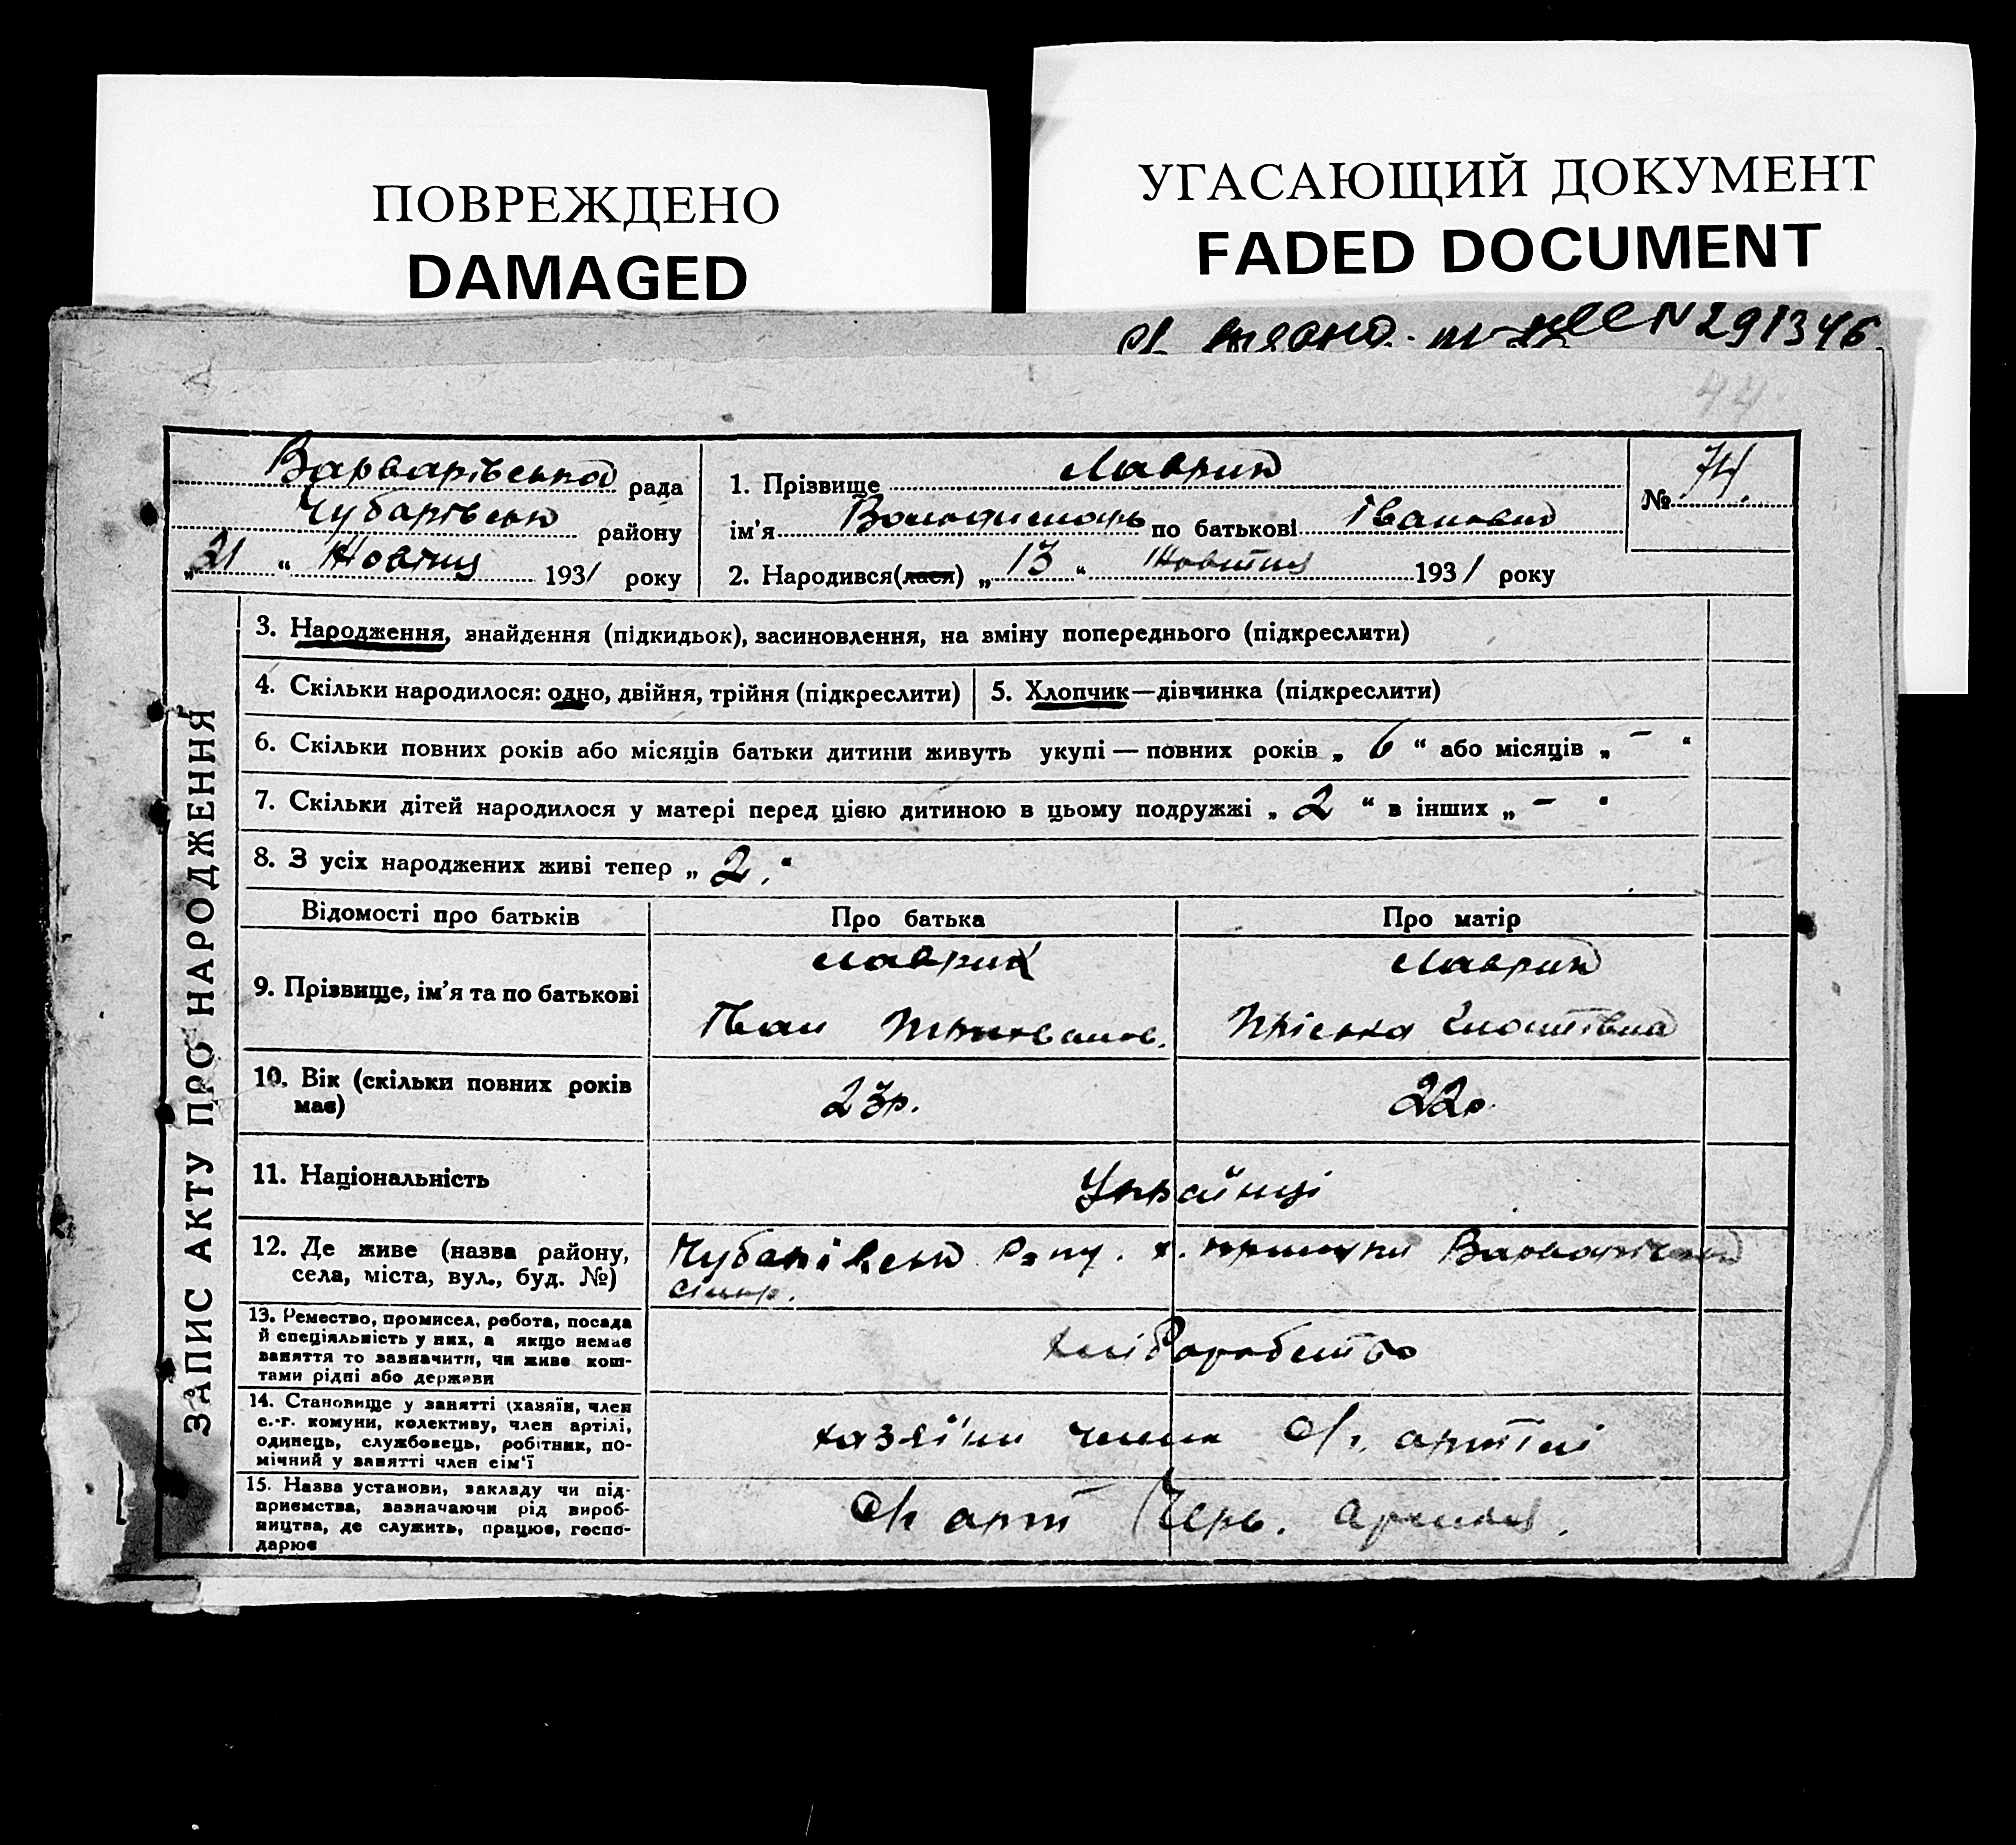 ПОВРЕЖДЕНО
DAMAGED
УГАСАЮЩИЙ ДОКУМЕНТ
FADED DOCUMENT
N 291346
44
Варварівська рада
Чубарівськ району
„21“ Жовтня 1931 року
1. Прізвище Лаврик
ім'я Володимирь по батькові Іванович
2. Народився(лася) „13“ Жовтня 1931 року
№ 74.
ЗАПИС АКТУ ПРО НАРОДЖЕННЯ
3. Народження, знайдення (підкидьок), засиновлення, на зміну попереднього (підкреслити)
4. Скільки народилося: одно, двійня, трійня (підкреслити)
5. Хлопчик—дівчинка (підкреслити)
6. Скільки повних років або місяців батьки дитини живуть укупі — повних років „ 6 “ або місяців „ – “
7. Скільки дітей народилося у матері перед цією дитиною в цьому подружжі „ 2 “ в інших „ – “
8. З усіх народжених живі тепер „ 2. “
Відомості про батьків
Про батька
Про матір
9. Прізвище, ім'я та по батькові
Лаврик
Іван
Лаврик
Пріська
10. Вік (скільки повних років
має)
23р.
22р.
11. Національність
Українці
12. Де живе (назва району,
села, міста, вул., буд. №)
Чубарівськ х. Варварівськ
13. Ремество, промисел, робота, посада
й спеціяльність у них, а якщо немає
заняття то зазначити, чи живе кош-
тами рідні або держави
хліборобство
14. Становище у занятті (хазяїн, член
с.-г. комуни, колективу, член артілі,
одинець, службовець, робітник, по-
мічний у занятті член сім'ї
хазяїни члени с/г. артілі
15. Назва установи, закладу чи під-
приємства, зазначаючи рід вироб-
ництва, де служить, працює, госпо-
дарює
с/г арт Черв.